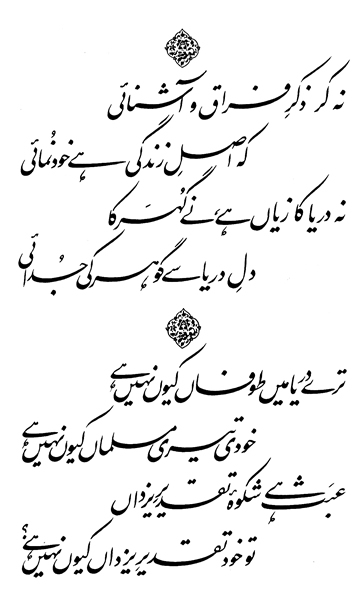 نہ کر ذکرِ فراق و آشنائی
کہ اصلِ زندگی ہے خود نُمائی
نہ دریا کا زیاں ہے، نے گُہَر کا
دلِ دریا سے گوہر کی جُدائی
ترے دریا میں طوفاں کیوں نہیں ہے
خودی تیری مسلماں کیوں نہیں ہے
عبَث ہے شکوۂ تقدیرِ یزداں
تو خود تقدیرِ یزداں کیوں نہیں ہے؟